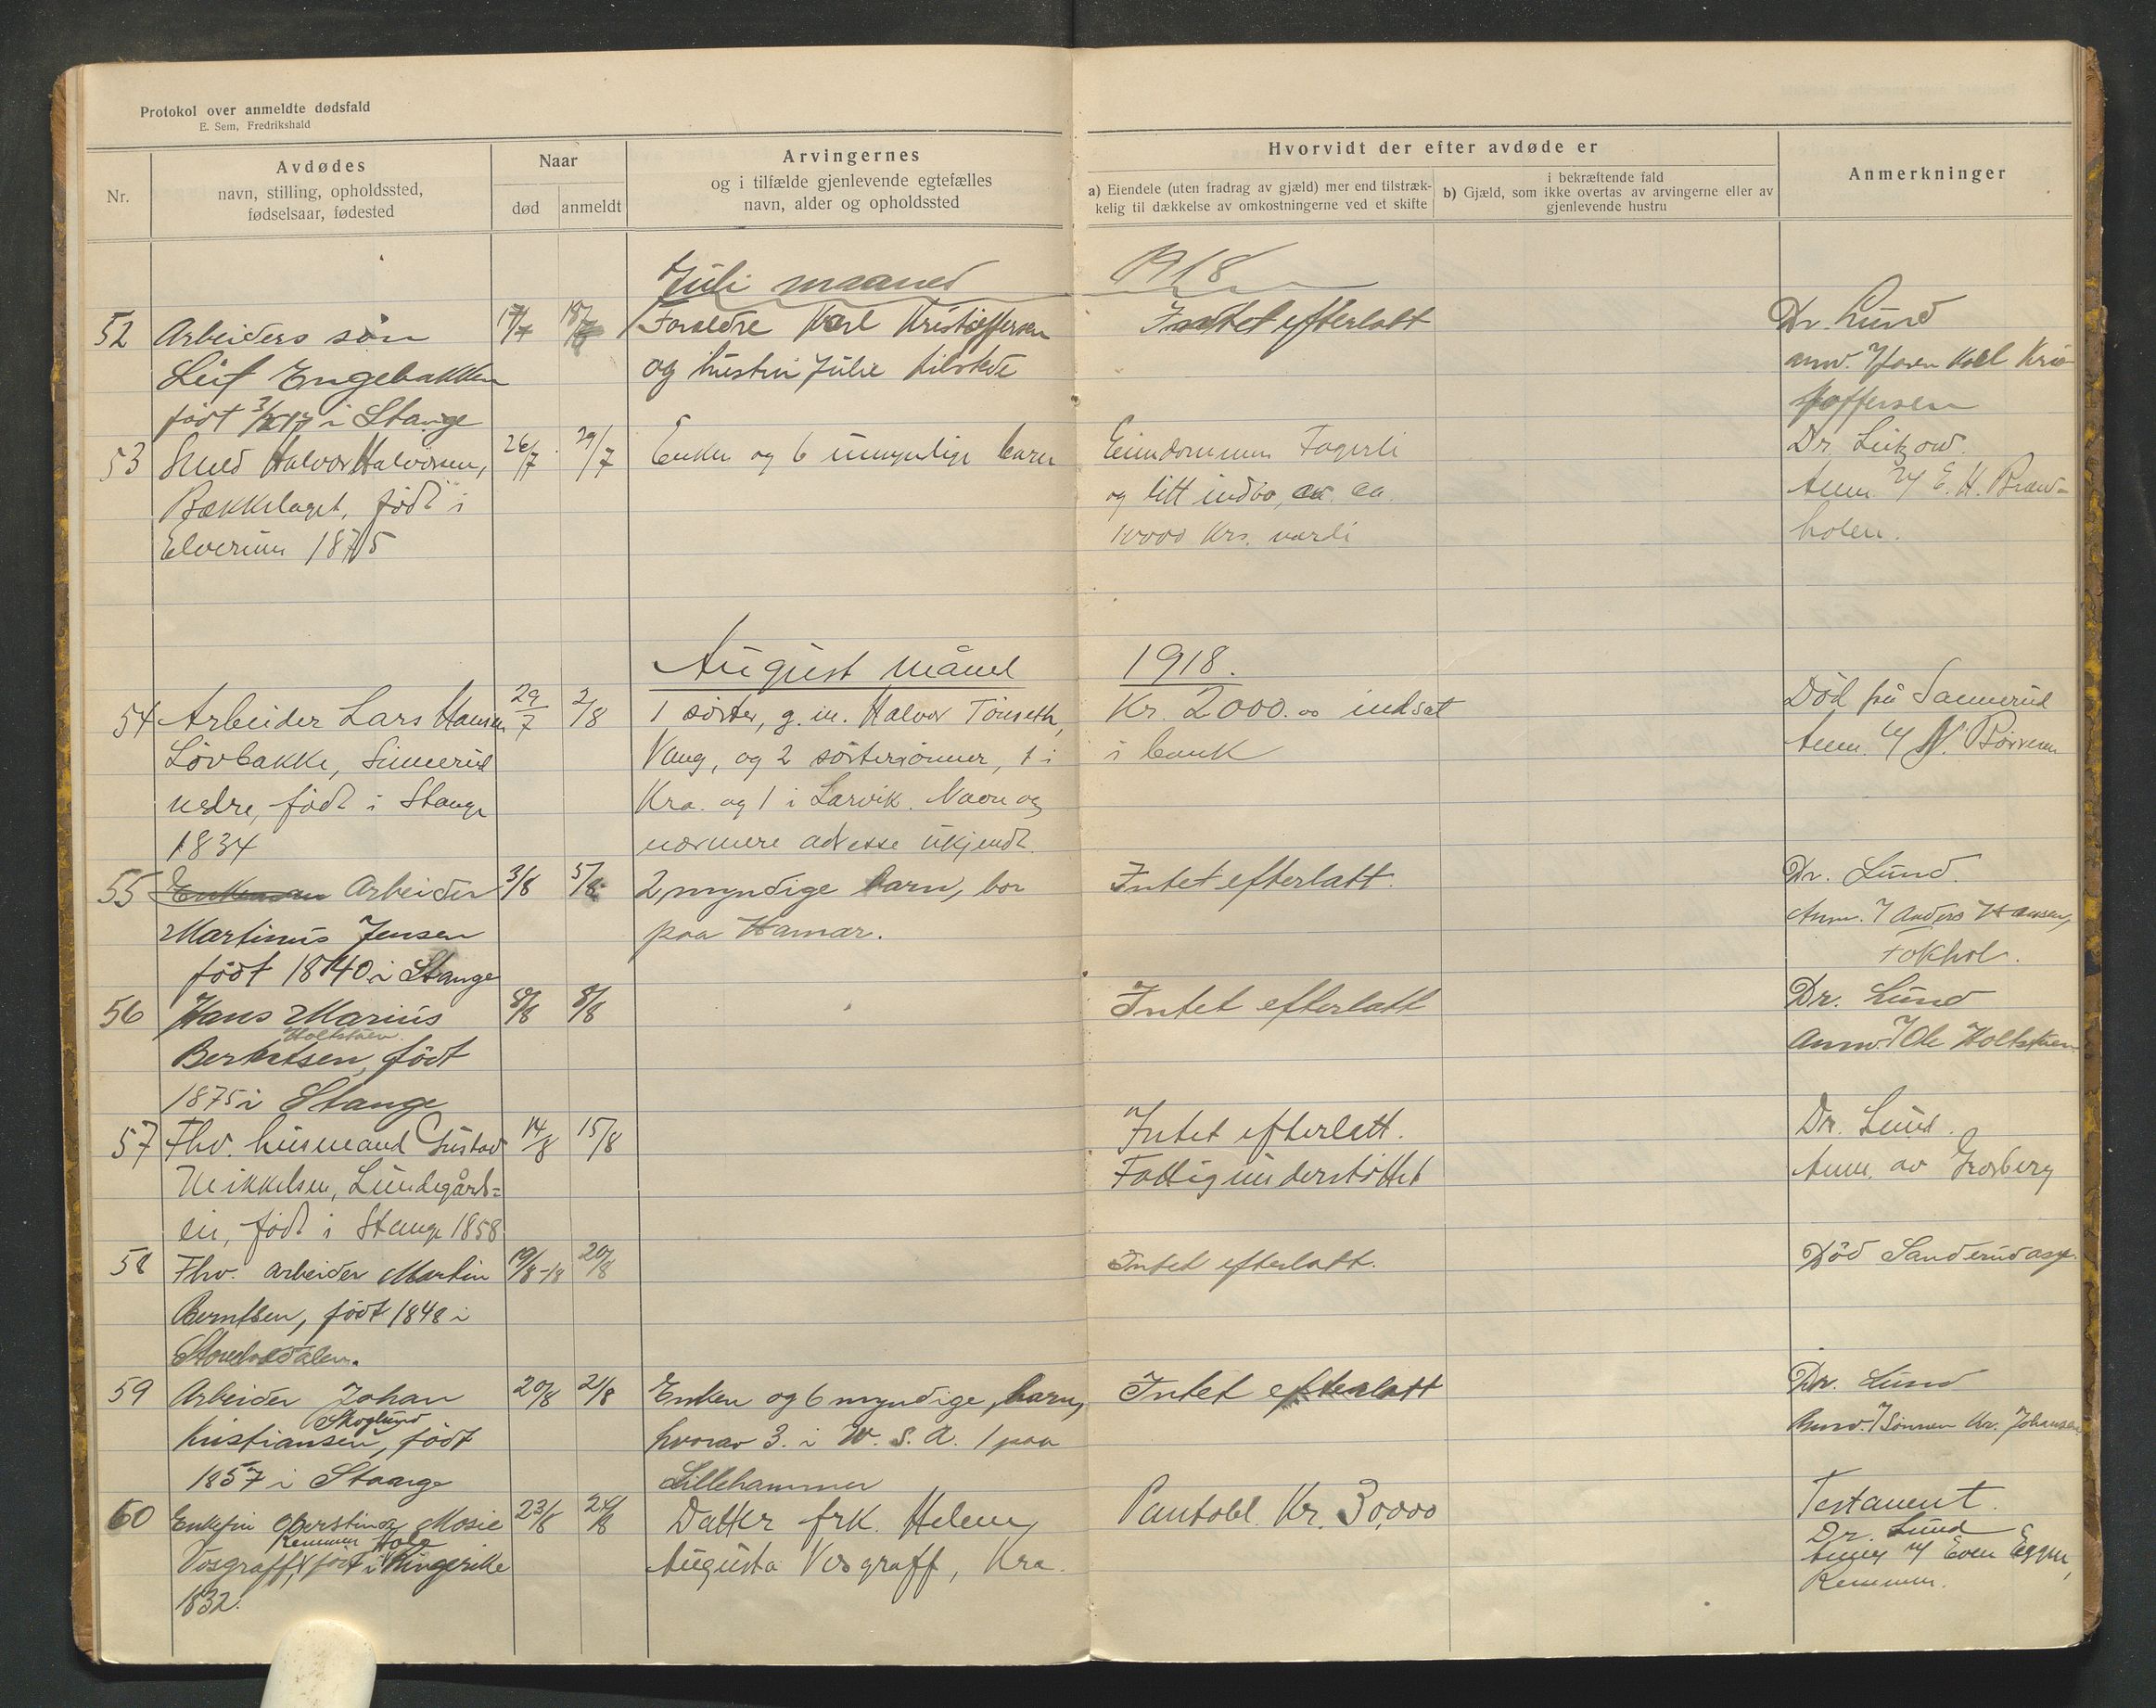 Protokol over anmeldte dødsfald
E. Sem, Fredrikshald
Nr.
Avdødes
navn, stilling, opholdssted,
fødselsaar, fødested
Naar
død
anmeldt
Arvingernes
og i tilfælde gjenlevende egtefælles
navn, alder og opholdssted
Hvorvidt der efter avdøde er
a) Eiendele (uten fradrag av gjæld) mer end tilstræk-
kelig til dækkelse av omkostningerne ved et skifte
i bekræftende fald
b) Gjæld, som ikke overtas av arvingerne eller av
gjenlevende hustru
Anmerkninger
Juli maaned 1918
52 Arbeiders søn 17/7 18/7 Foreldre Karl Kristoffersen Intet efterlatt Dr. Lund
Leif Engebakken og hustru Julie tilstede anm. Faren Karl Kris-
født 17 i Stange toffersen
53 Smed Halvor Halvorsen, 26/7 29/7 Enke og 6 umyndige barn Eiendommen Fagerli Dr. Lützow.
Bækkelaget, født i og litt indbo, ca. Anm. v/ E. H.
Elverum 1875 10000 Krs. værdi holen.
August måned 1918.
54 Arbeider Lars Hansen 29/7 2/8 1 søster, g. m. Halvor Tønseth, Kr. 2000.00 indsat Død på Sanderud
Løvbakke, nedre, født i Stange Vang, og 2 søstersønner, 1 i i bank Anm. v/ N.
1834 Kra. og 1 i Larvik. Navn og
nærmere adresse ukjendt.
55 Enkemann Arbeider 3/8 5/8 2 myndige barn, bor Intet efterlatt. Dr. Lund.
Martinus Jensen paa Hamar. Anm. / Anders Hansen,
født 1840 i Stange Fokhol.
56 Hans Marius 8/8 8/8 Intet efterlatt Dr. Lund
Holtstuen
Berntsen, født Anm. / Ole Holtstuen
1875 i Stange
57 Fhv. husmand Gustav 14/8 15/8 Intet efterlatt. Dr. Lund.
Mikkelsen, Lundegård- Fattigunderstøttet Anm. av
ei, født i Stange 1858
58 Fhv. arbeider Martin 19/8-18 20/8 Intet efterlatt. Død Sanderud asyl.
Berntsen, født 1848 i
59 Arbeider Johan 20/8 21/8 Enken og 6 myndige barn, Intet efterlatt Dr. Lund
Skoglund
Kristiansen, født hvorav 3. i U. S. A. 1 paa Anm. / Sønnen Kr. Johansen
1857 i Stange Lillehammer
60 Enkefru Mosie 23/8 24/8 Datter frk. Helene Pantobl. Kr. 30,000 Testament.
Remmen Hole Dr. Lund
Vosgraff, født i Ringerike Augusta Vosgraff, Kra. Anm. v/ Even
1832. Remmen.